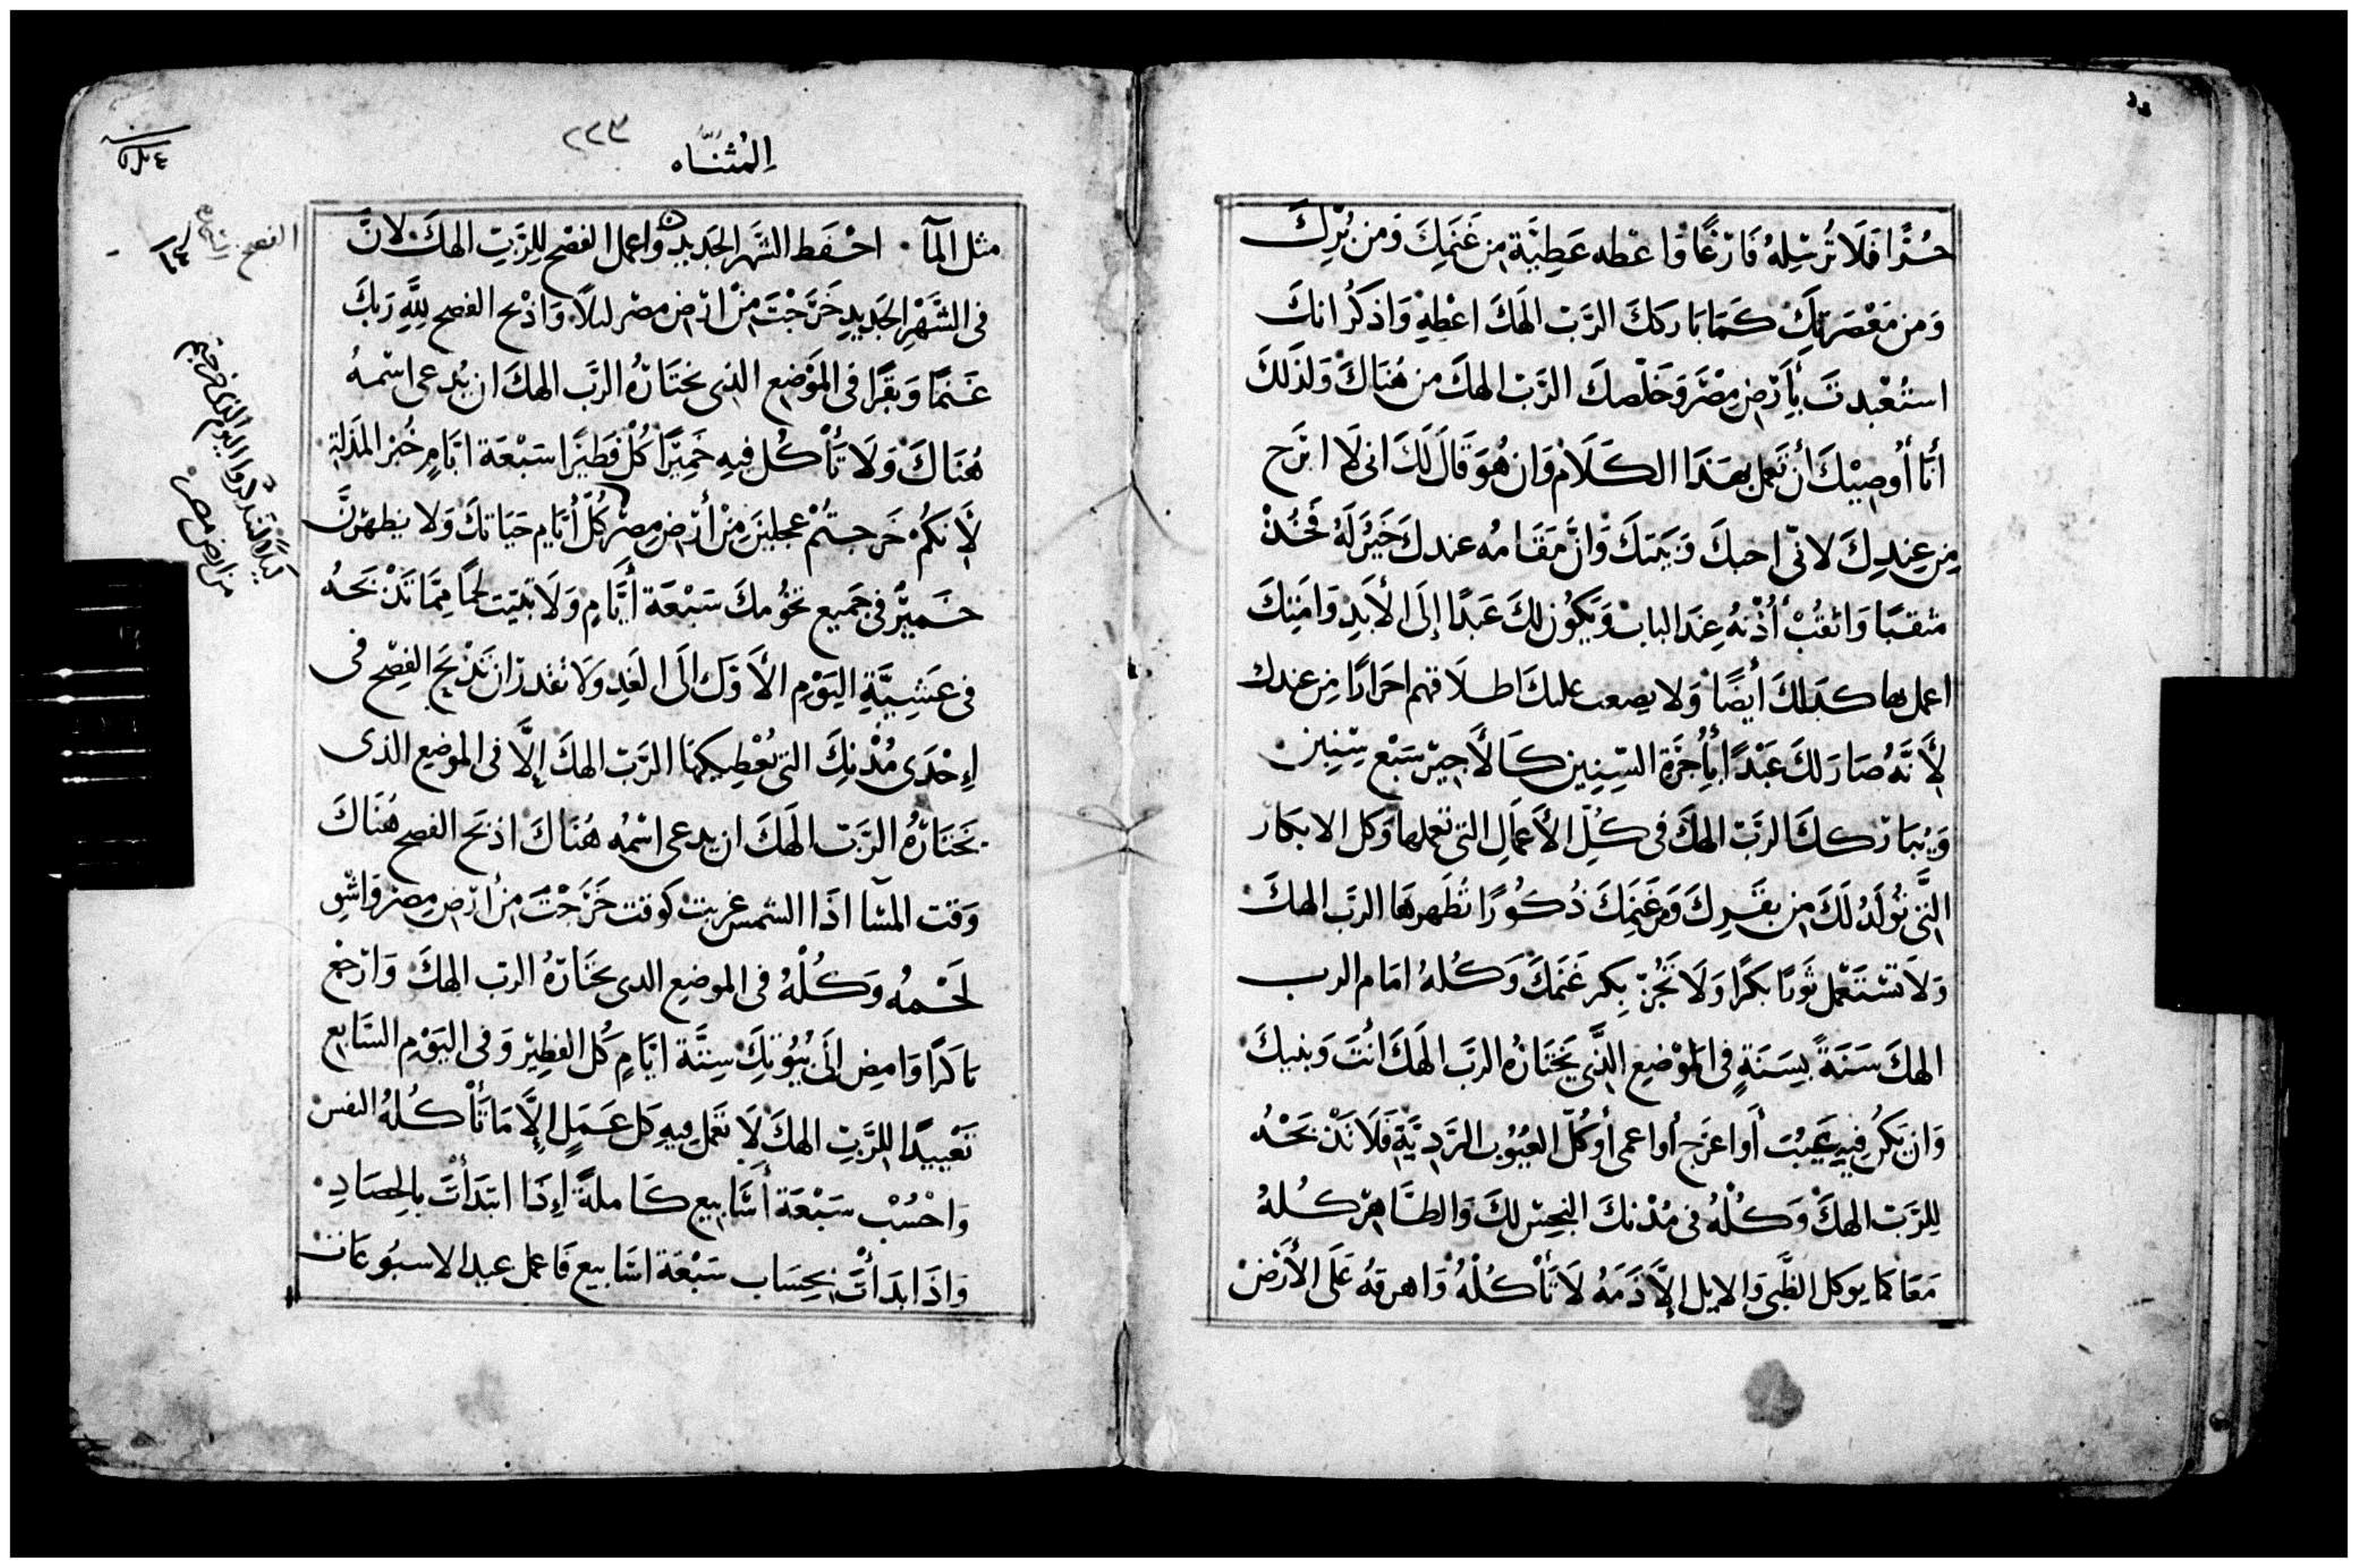 حُرًّا فَلَا تُرْسِلهُ فَارْغًا وَاعْطه عَطِيَّة مِن غَنَمِكَ وَمِن بُرِّكَ
وَمِن مَعْصَرَتِكَ كَمَا بَارَكَكَ الرَّبّ الَهَكَ اعْطِهِ وَاذكُر انكَ
اسْتُعْبِدتَ بِأَرْضِ مِصْرَ وَخَلَّصكَ الرَّبّ الهكَ من هُنَاكَ وَلِذَلِكَ
أَنَا أُوصِيْكَ أَن تَعمل بهَذَا الكَلَام وَان هُوَ قَالَ لَكَ انى لَا ابرَح
مِن عِندِكَ لانّى احبكَ وَبَيتكَ وَانَّ مَقَامُه عندكَ خَيْرٌ لَهُ فَخُذْ
مثقبًا وَاثقُبْ أُذْنهُ عِندَ الباب وَيَكُون لكَ عَبدًا إِلَى الأَبَدِ وَامَتِكَ
اعمل بها كذلكَ أَيضًا وَلا يصعب عليكَ اطلَاقهم احرَارًا مِن عندك
لأَنَّهُ صَارَ لكَ عَبْدًا بأُجْرَةِ السِّنِين كَالأَجِيْر سَبْع سِنِين
وَيُبَاركك الرَّبّ الهكَ فى كُلّ الأَعمَالِ التى تعملها وَكل الابكار
الَّتى تُولَدُ لَكَ مِن بقَرِكَ وَغَنَمِكَ ذُكُورًا تُطَهرهَا الرب الهكَ
وَلَا تَسْتَعمل ثَورًا بكرًا وَلَا تَجُزّ بِكر غَنَمكَ وَكلهُ امَام الرب
الهكَ سَنَةً بسَنَةٍ فى المَوْضِعِ الَّذِى يَختَارُه الربّ الَهَكَ انْتَ وَبنيكَ
وَان يَكُن فيهِ عَيبٌ أَو اعرَج أَو اعمى أَو كُلّ العُيُوبِ الرَّدِيَّةِ فَلَا تَذْبَحْهُ
للرَّبّ الهكَ وَكُلْهُ فى مُدْنكَ النجِس لكَ وَالطَّاهِر كلهُ
مَعَا كما يوكل الظَّبى وَالايل إِلَّا دَمَهُ لَا تَأْكُلْهُ وَاهرقهُ عَلَى الأَرْضْ
المُثنَّاه
٢٢٣
مثل المآ احْفَظ الشَّهر الجَديد وَاعمل الفصْح للرَّبِّ الهكَ لانَّ
فى الشَّهْرِ الجَدِيدِ خَرَجْتَ مِنْ ارْض مصْر ليلًا وَاذْبح الفصح لِلَّهِ رَبكَ
غَنمًا وَبقَرًا فى المَوْضِعِ الذِى يختَارُهُ الربّ الهكَ ان يُدعى اسْمهُ
هُنَاكَ وَلَا تَأْكُل فيهِ خَمِيْرًا كُلْ فَطيْرًا سَبْعَة ايَّامٍ خُبز المذَلة
لأَنكُمْ خَرجتُمْ عجلينَ مِنْ أَرْضِ مِصْر كُلّ أَيَّامِ حَيَاتكَ وَلا يظهرَنَّ
خَمِيْرٌ فى جَمِيع تخُومكَ سَبْعَة أَيَّامٍ وَلَا تبيّت لحمًا مِمَّا تَذْبَحهُ
فى عَشِيَّةِ اليَوْمِ الأَوَّلِ الَى الغَدِ وَلَا تقدر ان تَذْبَح الفِصْح فى
إِحْدَى مُدْنِكَ التى يُعْطِيكهَا الرَّبّ الهكَ إِلَّا فى الموضِع الذى
يَختَارُهُ الرَّبّ الَهكَ ان يدعى اسْمُه هُنَاكَ اذبَح الفصح هُنَاكَ
وَقت المسَآ اذَا الشمس غربتْ كوقت خَرَجْتَ مِنْ ارْض مِصْر وَاشْوِ
لَحْمهُ وَكُلْهُ فى الموضِع الدى يختَارُهُ الربّ الهكَ وَارْجعْ
بَاكرًا وَامضِ إِلَى بُيُوتِكَ سِتَّة ايَّامٍ كُل الفطِيْر وَفى اليَوْم السَّابع
تَعْييدًا للرَّبِّ الهكَ لَا تعمَل فِيهِ كُلّ عَمَلٍ إِلَّا مَا تَأْكُلهُ النفس
وَاحْسُبْ سَبْعَة أَسَابِيع كَاملَةً إِذَا ابتَدَأْتَ بالحِصَادِ
وَاذَا بَدَأْتَ بحِسَاب سَبْعَة اسَابيع فَاعمل عيد الاسبُوعَات
الفصح
لتذكروا اليوم الذى خرجتم
من ارض مصر